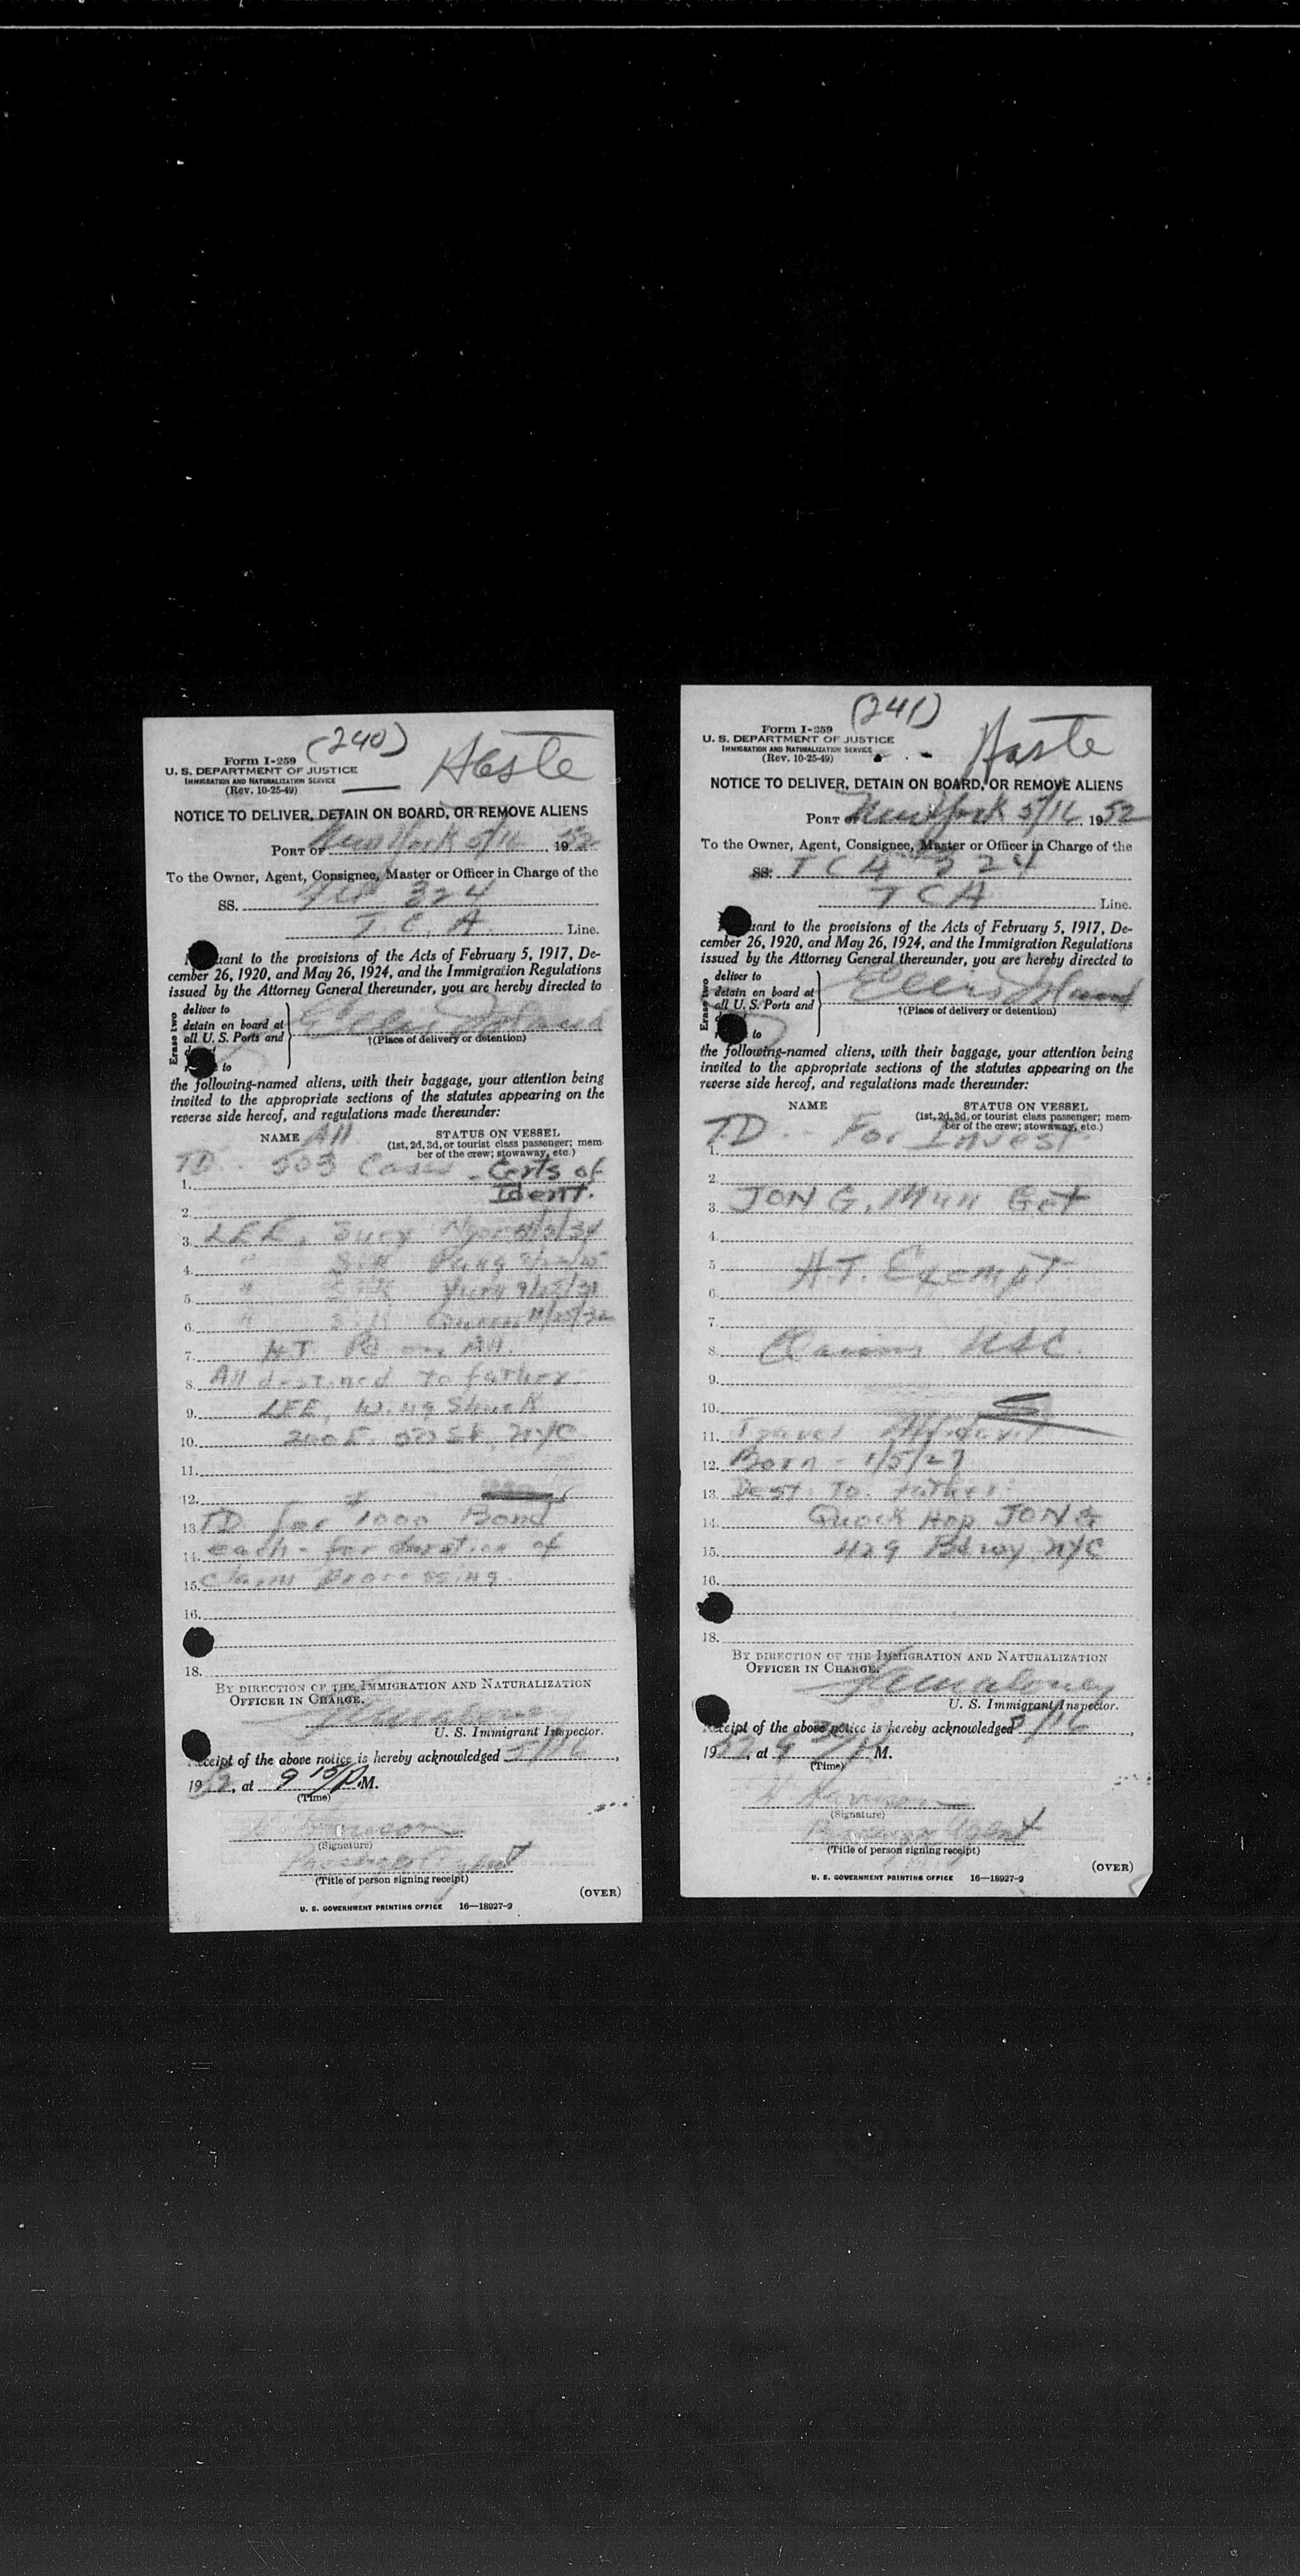 (240)
Haste
Form I-259
U. S. DEPARTMENT OF JUSTICE
IMMIGRATION AND NATURALIZATION SERVICE
(Rev. 10-25-49)
NOTICE TO DELIVER, DETAIN ON BOARD, OR REMOVE ALIENS
PORT OF New York 5/16, 1952
To the Owner, Agent, Consignee, Master or Officer in Charge of the
SS. 324
T. C. A. Line.
uant to the provisions of the Acts of February 5, 1917, De-
cember 26, 1920, and May 26, 1924, and the Immigration Regulations
issued by the Attorney General thereunder, you are hereby directed to
Erase two
deliver to
detain on board at
all U. S. Ports and
to
Ellis Island
†(Place of delivery or detention)
the following-named aliens, with their baggage, your attention being
invited to the appropriate sections of the statutes appearing on the
reverse side hereof, and regulations made thereunder:
NAME All STATUS ON VESSEL
(1st, 2d, 3d, or tourist class passenger; mem-
ber of the crew; stowaway, etc.)
TD. 503 Cases - Certs of
1. Ident.
2.
3. LEE, Suey
4. "
5. " 9/25/31
6. "
7. H.T. Pd on All.
8. All destined to father
9. LEE, Wing Shuck
10. 200 E. St, NYC
11.
12.
13. TD for $1000 Bond
14. each - for duration of
15. Claim Processing.
16.
18.
BY DIRECTION OF THE IMMIGRATION AND NATURALIZATION
OFFICER IN CHARGE.
U. S. Immigrant Inspector.
eceipt of the above notice is hereby acknowledged 5/16,
1952, at 9 15/P.M.
(Time)
(Signature)
Passenger Agent
(Title of person signing receipt)
(OVER)
U. S. GOVERNMENT PRINTING OFFICE 16—18927-2
(241)
Haste
Form I-259
U. S. DEPARTMENT OF JUSTICE
IMMIGRATION AND NATURALIZATION SERVICE
(Rev. 10-25-49)
NOTICE TO DELIVER, DETAIN ON BOARD, OR REMOVE ALIENS
PORT OF New York 5/16, 1952
To the Owner, Agent, Consignee, Master or Officer in Charge of the
SS. TCA 324
TCA Line.
uant to the provisions of the Acts of February 5, 1917, De-
cember 26, 1920, and May 26, 1924, and the Immigration Regulations
issued by the Attorney General thereunder, you are hereby directed to
Erase two
deliver to
detain on board at
all U. S. Ports and
to
Ellis Island
†(Place of delivery or detention)
the following-named aliens, with their baggage, your attention being
invited to the appropriate sections of the statutes appearing on the
reverse side hereof, and regulations made thereunder:
NAME STATUS ON VESSEL
(1st, 2d, 3d, or tourist class passenger; mem-
ber of the crew; stowaway, etc.)
TD. For Invest
1.
2.
3. JONG, Mun Get
4.
5. H.T. Exempt
6.
7.
8. Claims USC.
9.
10.
11. Travel Affidavit
12. Born - 1/5/27
13. Dest. To. father:
14. Quock Hop JONG
15. 429 Bdwy, NYC
16.
18.
BY DIRECTION OF THE IMMIGRATION AND NATURALIZATION
OFFICER IN CHARGE.
Maloney
U. S. Immigrant Inspector.
eceipt of the above notice is hereby acknowledged 5/16,
1952, at 9 M.
(Time)
(Signature)
Passenger Agent
(Title of person signing receipt)
(OVER)
U. S. GOVERNMENT PRINTING OFFICE 16—18927-2